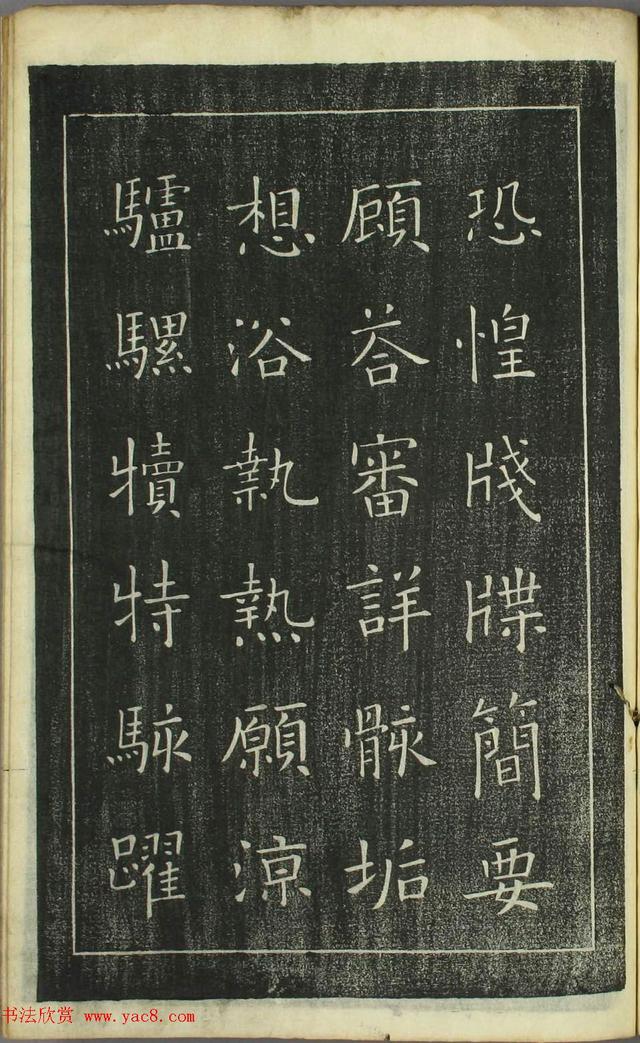 恐惶牋牒簡要
顧荅審詳骸垢
想浴執熱願涼
驢騾犢特駭躍
书法欣赏 www.yac8.com